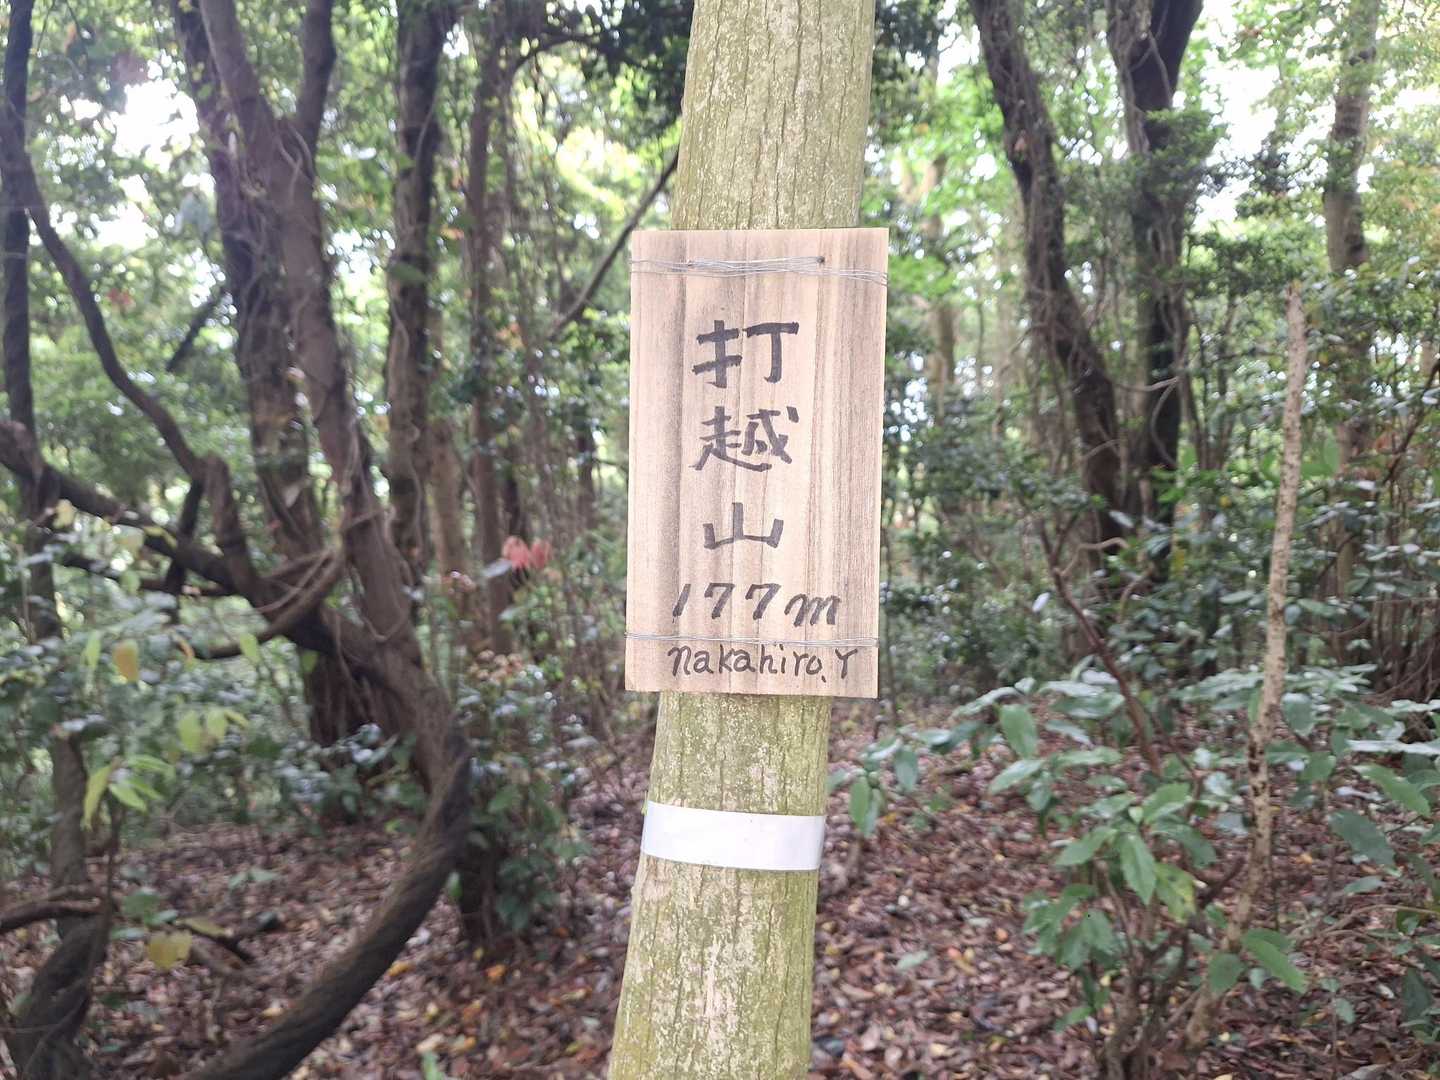 打越山
177m
nakahiro.Y